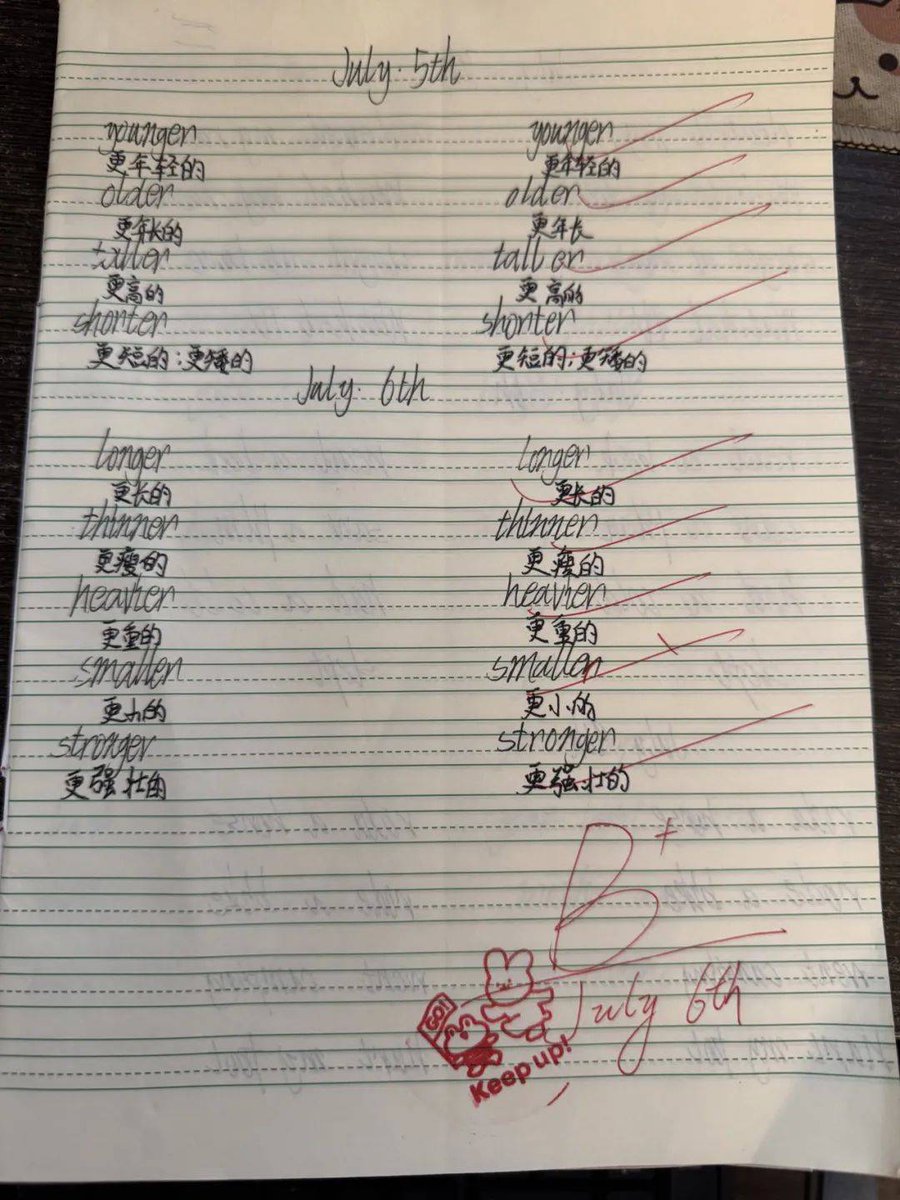 July. 5th
younger younger
更年轻的 更年轻的
older older
更年长的 更年长
taller taller
更高的 更高的
shorter shorter
更短的;更矮的 更短的;更矮的
July. 6th
longer longer
更长的 更长的
thinner thinner
更瘦的 更瘦的
heavier heavier
更重的 更重的
smaller smaller
更小的 更小的
stronger stronger
更强壮的 更强壮的
B+
July 6th
GO!
Keep up!